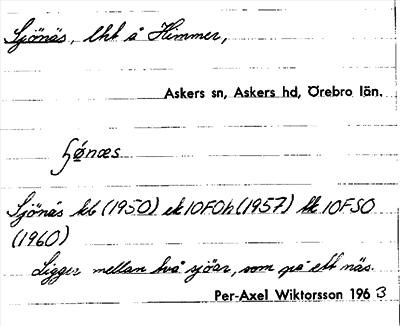 Sjönäs, lht å Himmer,
Askers sn, Askers hd, Örebro län.
ʃǿnæs
Sjönäs kb (1950) ek 10F0h (1957) tk 10FSO
(1960)
Ligger mellan två sjöar, som på ett näs.
Per-Axel Wiktorsson 1963